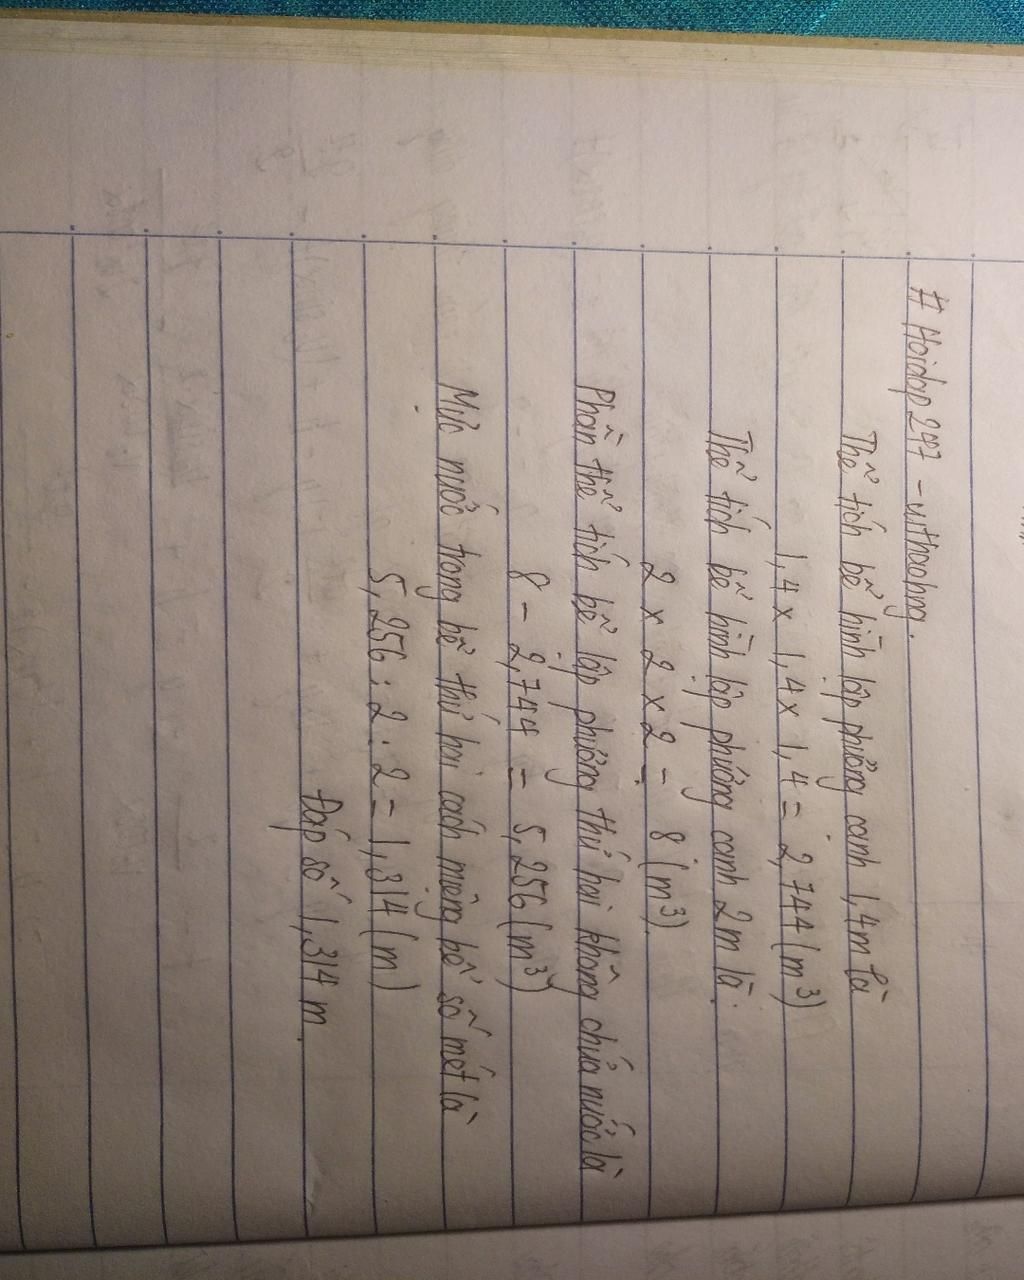 # Hoidap247 - withoahng.
Thể tích bể hình lập phương cạnh 1,4m là
1,4 x 1,4 x 1,4 = 2,744 (m³)
Thể tích bể hình lập phương cạnh 2m là:
2 x 2 x 2 = 8 (m³)
Phần thể tích bể lập phương thứ hai không chứa nước là
8 - 2,744 = 5,256 (m³)
Mức nước trong bể thứ hai cách miệng bể số mét là
5,256 : 2 : 2 = 1,314 (m)
Đáp số 1,314 m.